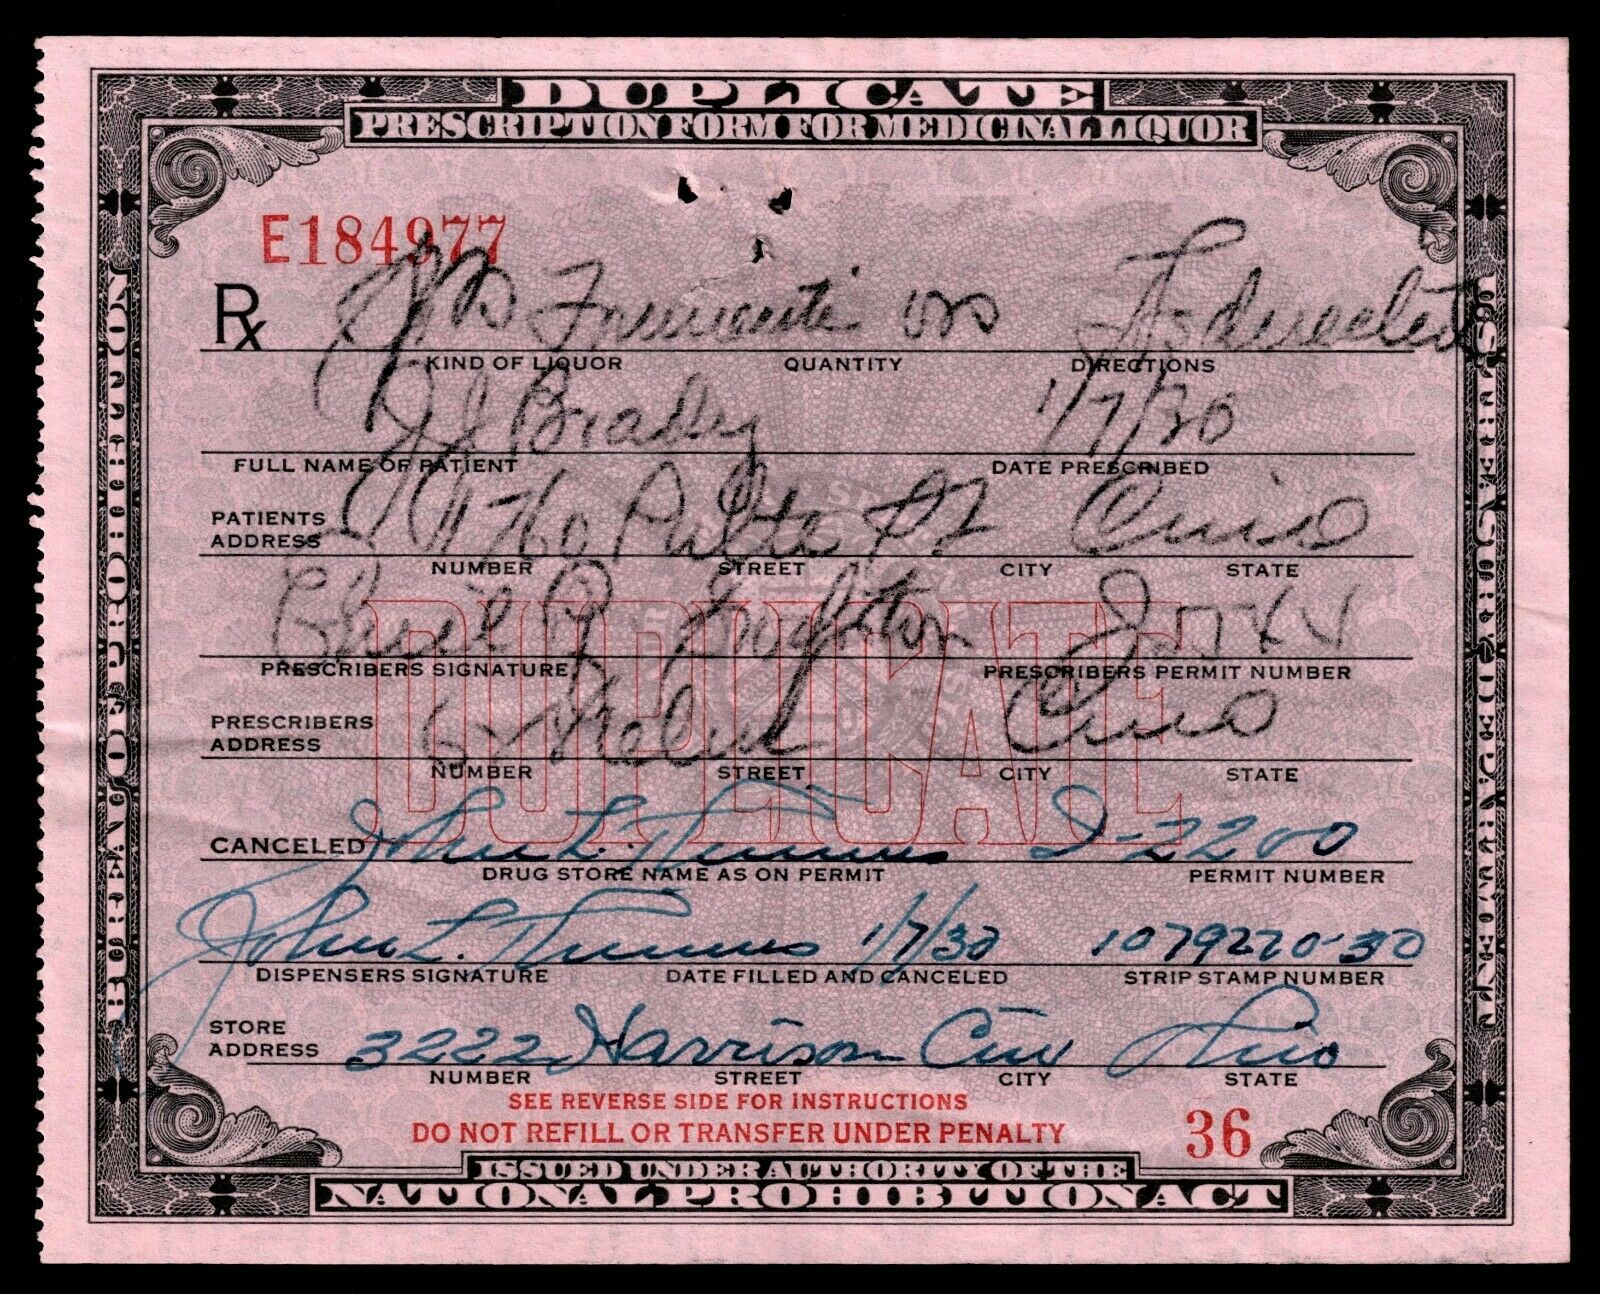 DUPLICATE
PRESCRIPTION FORM FOR MEDICINAL LIQUOR
E184977
Rx Frumenti As directed
KIND OF LIQUOR QUANTITY DIRECTIONS
J J Bradley 1/7/30
FULL NAME OF PATIENT DATE PRESCRIBED
PATIENTS ADDRESS 1760 St
NUMBER STREET CITY STATE
DUPLICATE
PRESCRIBERS SIGNATURE PRESCRIBERS PERMIT NUMBER
PRESCRIBERS ADDRESS
NUMBER STREET CITY STATE
CANCELED John L. I-2200
DRUG STORE NAME AS ON PERMIT PERMIT NUMBER
John L. 1/7/30 1079270-30
DISPENSERS SIGNATURE DATE FILLED AND CANCELED STRIP STAMP NUMBER
STORE ADDRESS 3222 Harrison Cin Ohio
NUMBER STREET CITY STATE
SEE REVERSE SIDE FOR INSTRUCTIONS
DO NOT REFILL OR TRANSFER UNDER PENALTY 36
ISSUED UNDER AUTHORITY OF THE
NATIONAL PROHIBITION ACT
BUREAU OF PROHIBITION
U.S. TREASURY DEPARTMENT